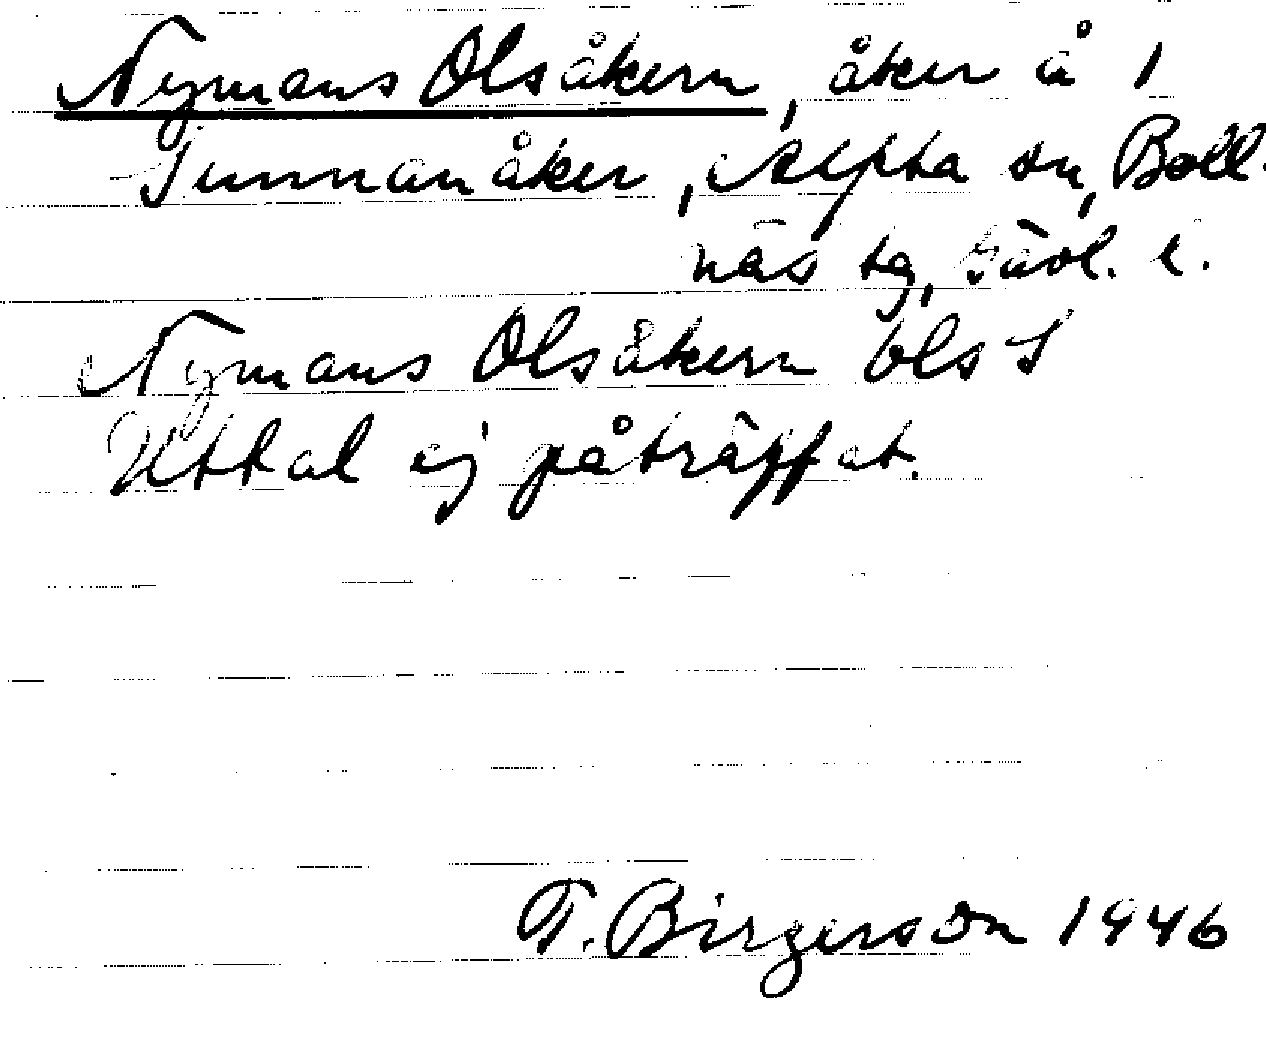 Nymans Olsåkern, åker å 1
Sunnanåker, Alfta sn, Boll-
näs tg, Gävl. l.
Nymans Olsåkern bls 1
Uttal ej påträffat.
T. Birgerson 1946